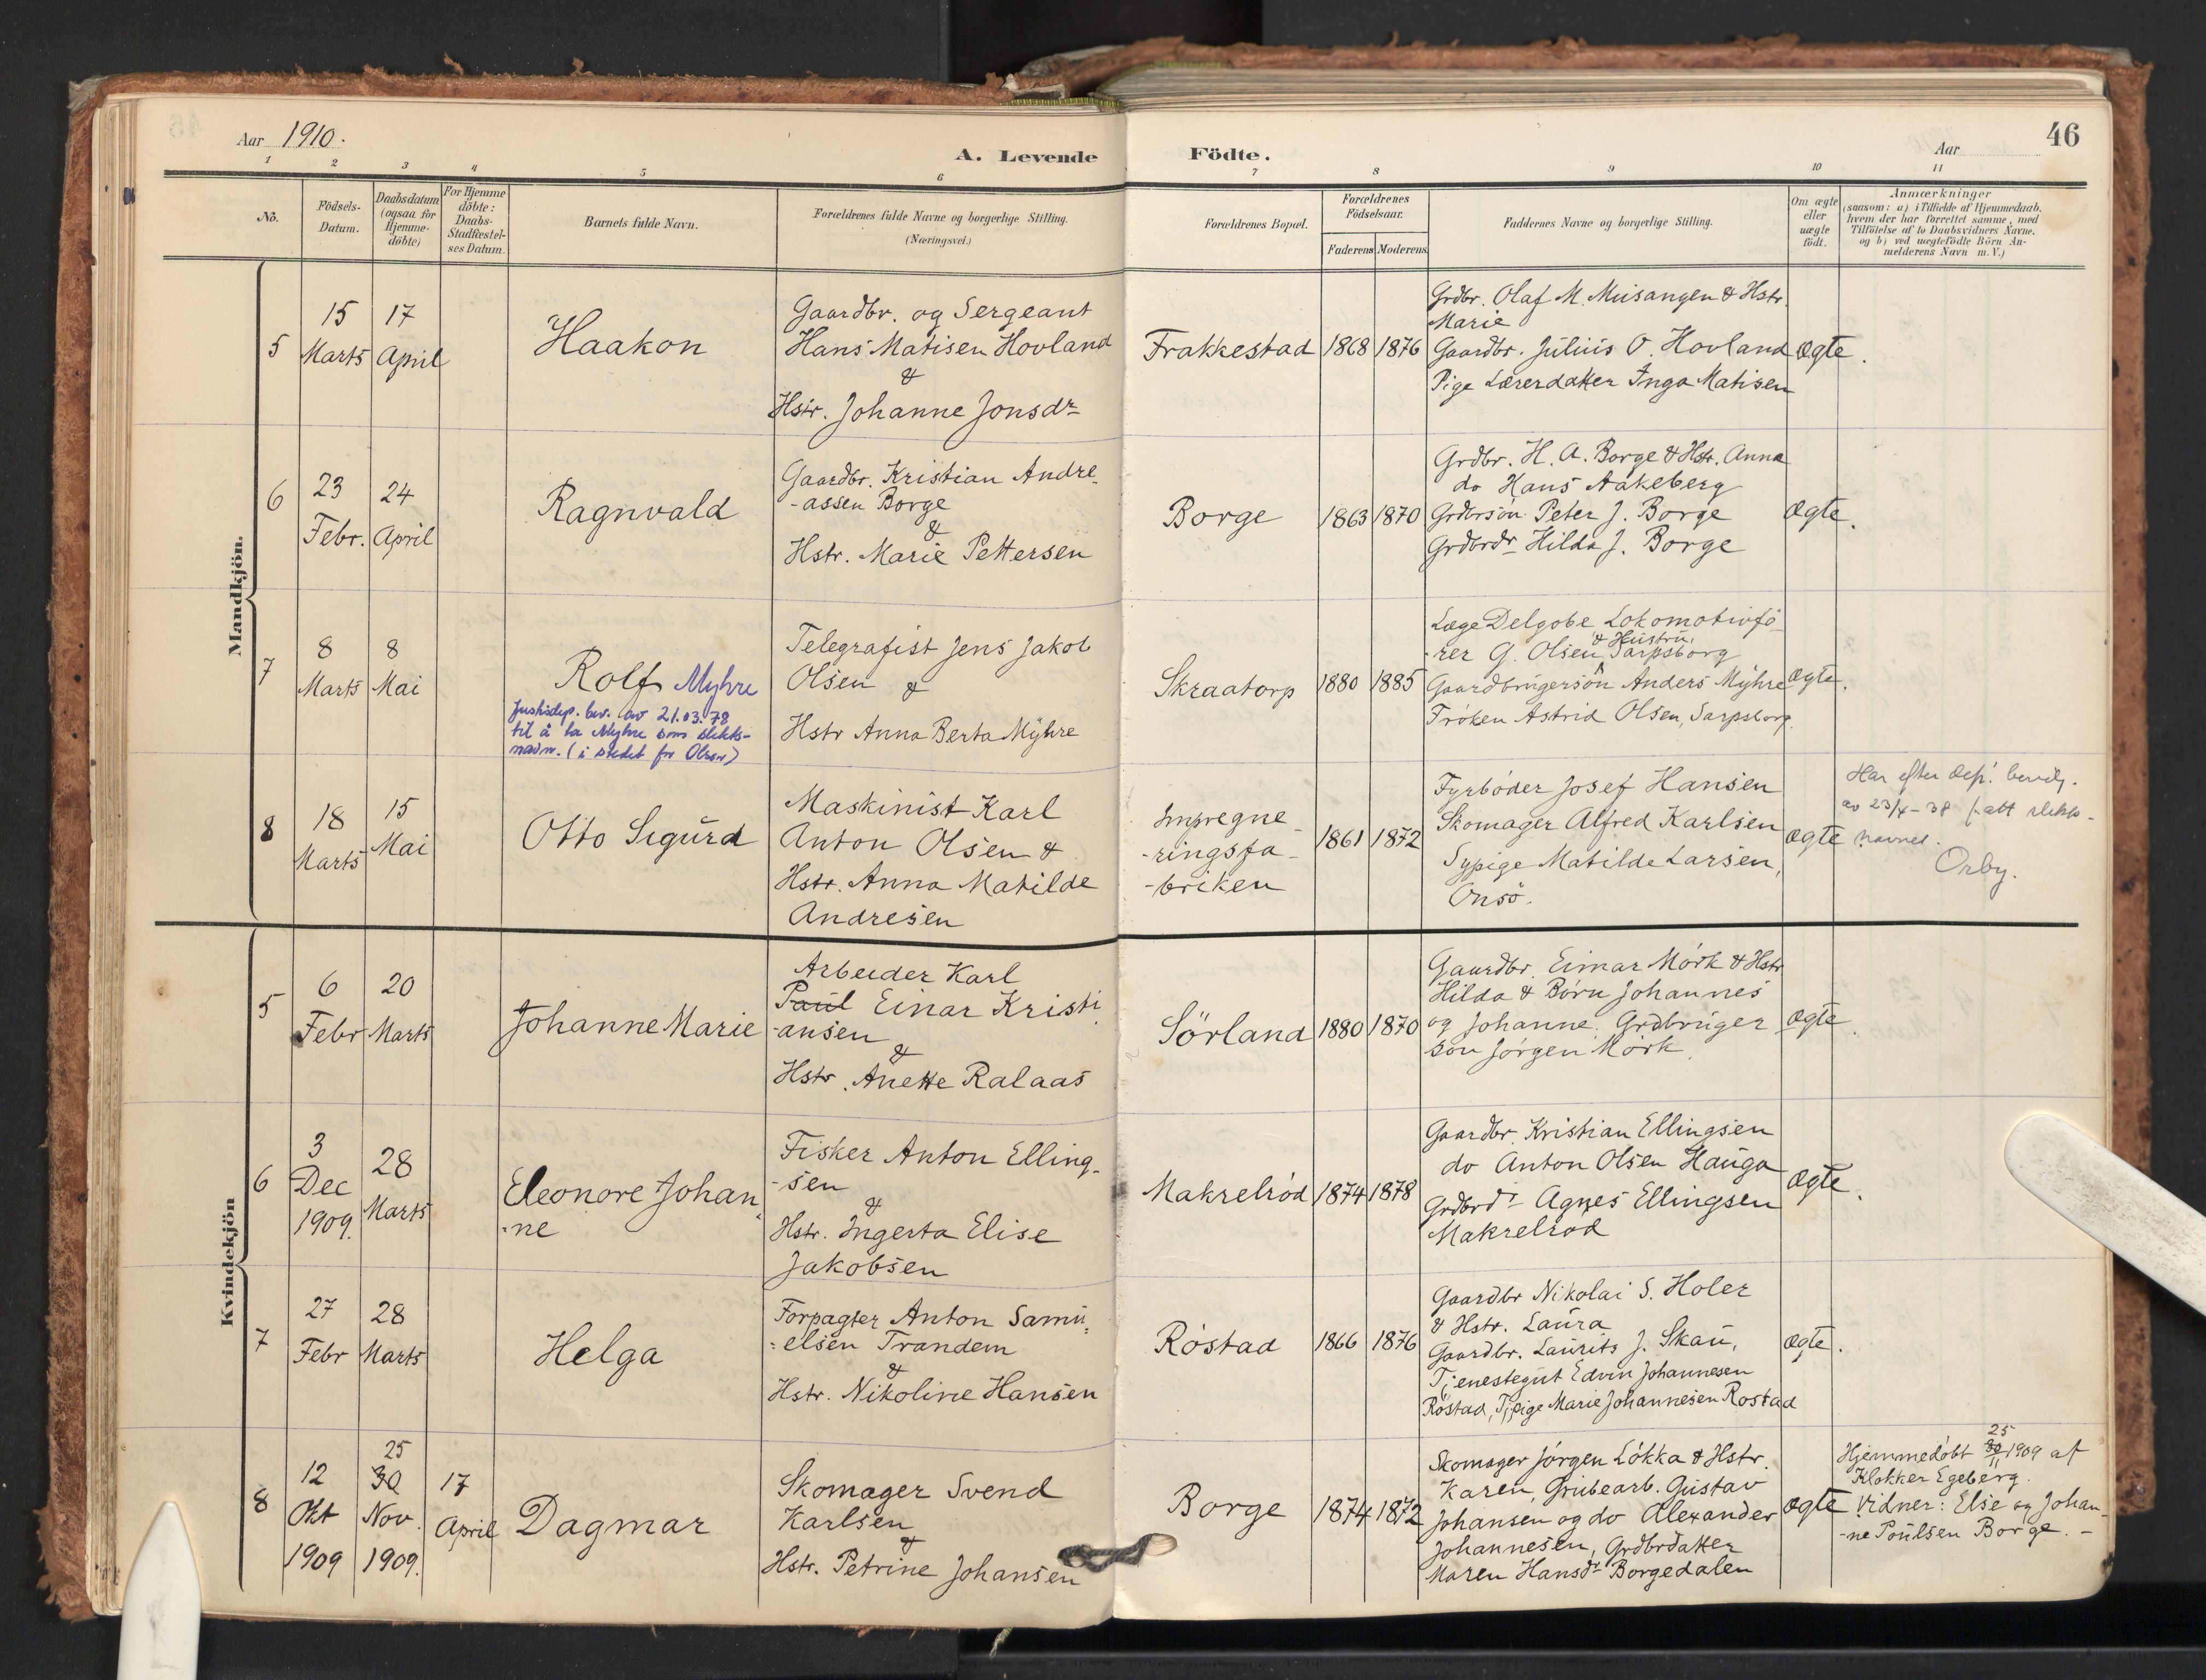 Aar 1910.
A. Levende Födte.
Aar
46
1 2 3 4 5 6 7 8 9 10 11
No.
Födsels-
Datum.
Daabsdatum
(ogsaa for
Hjemme-
döbte)
For Hjemme
döbte:
Daabs-
Stadfæstel-
ses Datum.
Barnets fulde Navn.
Forældrenes fulde Navne og borgerlige Stilling.
(Næringsvei.)
Forældrenes Bopæl.
Forældrenes
Födselsaar.
Faderens Moderens
Faddernes Navne og borgerlige Stilling.
Om ægte
eller
uægte
födt.
Anmærkninger
(saasom: a) i Tilfælde af Hjemmedaab,
hvem der har forrettet samme, med
Tilföielse af to Daabsvidners Navne,
og b) ved uægtefödte Börn An-
melderens Navn m.V.)
Mandkjön.
5
15
Marts
17
April
Haakon
Gaardbr. og Sergeant
Hans Matisen Hovland
&
Hstr. Johanne Jonsdr
Frakkestad
1868
1876
Grdbr. Olaf M. Musangen & Hstr.
Marie
Gaardbr. Julius O. Hovland
Pige Lærerdatter Inga Matisen
Ægte.
6
23
Febr.
24
April
Ragnvald
Gaardbr. Kristian Andre-
-assen Borge
&
Hstr. Marie Pettersen
Borge
1863
1870
Grdbr. H. A. Borge & Hstr. Anna
do Hans Aakeberg
Grdbrsön Peter J. Borge
Grdbrdr Hilda J. Borge
Ægte.
7
8
Marts
8
Mai
Rolf Myhre
Justisdep. bev. av 21.03.78
til å ta Myhre som slekts-
navn. (i stedet for Olsen)
Telegrafist Jens Jakob
Olsen &
Hstr Anna Berta Myhre
Skraatorp
1880
1885
Læge Delgobe Lokomotivfö-
& Hustru,
-rer G. Olsen Sarpsborg
Gaardbrugersön Anders Myhre
Fröken Astrid Olsen, Sarpsborg.
Ægte.
8
18
Marts
15
Mai
Otto Sigurd
Maskinist Karl
Anton Olsen &
Hstr. Anna Matilde
Andresen
Impregne-
-ringsfa-
-briken
1861
1872
Fyrböder Josef Hansen
Skomager Alfred Karlsen
Sypige Matilde Larsen,
Onsö.
Ægte
Har efter dep. bevilg.
av 23/4-38 fått slekts-
navnet
Orby.
Kvindekjön
5
6
Febr
20
Marts
Johanne Marie
Arbeider Karl
Paul Einar Kristi
-ansen
&
Hstr. Anette Ralaas
Sörland
1880
1870
Gaardbr. Einar Mörk & Hstr
Hilda & Börn Johannes
og Johanne. Grdbruger
sön Jörgen Mörk.
Ægte.
6
3
Dec
1909.
28
Marts
Eleonore Johan-
-ne
Fisker Anton Elling-
-sen
&
Hstr. Ingerta Elise
Jakobsen
Makrelröd
1874
1878
Gaardbr. Kristian Ellingsen
do Anton Olsen Hauga
Grdbrdr Agnes Ellingsen
Makrelröd
Ægte.
7
27
Febr
28
Marts
Helga
Forpagter Anton Samu-
-elsen Trandem
&
Hstr. Nikoline Hansen
Röstad
1866
1876
Gaardbr Nikolai S. Holer
& Hstr. Laura
Gaardbr. Laurits J. Skau,
Tjenestegut Edvin Johannesen
Röstad, Tj.pige Marie Johannesen Rostad
Ægte.
8
12
Okt
1909
25
30
Nov.
1909.
17
April
Dagmar
Skomager Svend
Karlsen
&
Hstr. Petrine Johansen
Borge
1874
1872
Skomager Jörgen Lökka & Hstr.
Karen, Grubearb. Gustav
Johansen og do Alexander
Johannesen, Grdbrdatter
Maren Hansdr Borgedalen
Ægte
25
Hjemmedöbt 30/11 1909 af
Klokker Egeberg.
Vidner: Else og Johan-
-ne Poulsen Borge. -